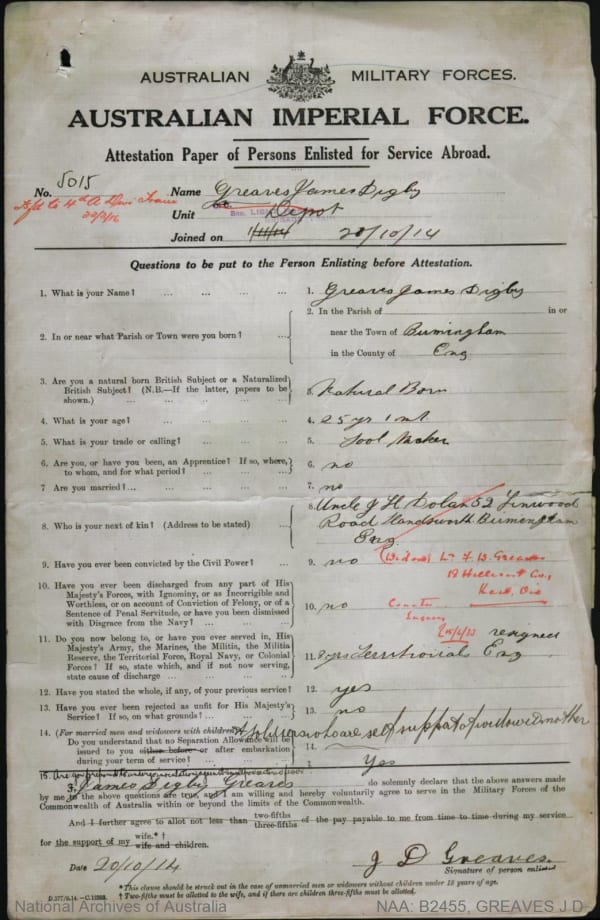 AUSTRALIAN MILITARY FORCES.
AUSTRALIAN IMPERIAL FORCE.
Attestation Paper of Persons Enlisted for Service Abroad.
No. 5015 Name Greaves James Digby
Unit Depot
22/2/16
Joined on 1/11/14 20/10/14
Questions to be put to the Person Enlisting before Attestation.
1. What is your Name? ... ... ... ... 1. Greaves James Digby
2. In or near what Parish or Town were you born? ... 2. In the Parish of in or
near the Town of Birmingham
in the County of Eng
3. Are you a natural born British Subject or a Naturalized
British Subject? (N.B.—If the latter, papers to be
shown.) ... ... ... ... 3. Natural Born
4. What is your age? ... ... ... ... 4. 25 yr 1 mt
5. What is your trade or calling? ... ... ... 5. Tool Maker
6. Are you, or have you been, an Apprentice? If so, where,
to whom, and for what period? ... ... ... 6. no
7 Are you married? ... ... ... ... 7. no
8. Who is your next of kin? (Address to be stated) ... 8. Uncle J H Dolan 52 Linwood
Road Handsworth Burmingham
Eng
9. Have you ever been convicted by the Civil Power? ... 9. no
(Widow) F. B. Greaves
Kew, Vic
10. Have you ever been discharged from any part of His
Majesty's Forces, with Ignominy, or as Incorrigible and
Worthless, or on account of Conviction of Felony, or of a
Sentence of Penal Servitude, or have you been dismissed
with Disgrace from the Navy? ... ... ... 10. no
11. Do you now belong to, or have you ever served in, His
Majesty's Army, the Marines, the Militia, the Militia
Reserve, the Territorial Force, Royal Navy, or Colonial
Forces? If so, state which, and if not now serving,
state cause of discharge ... ... ... resigned
11. yrs Territorial Eng
12. Have you stated the whole, if any, of your previous service? 12. yes
13. Have you ever been rejected as unfit for His Majesty's
Service? If so, on what grounds? ... ... 13. no
14. (For married men and widowers with children who are sole support of widowed mother
Do you understand that no Separation Allowance will be
issued to you either before or after embarkation
during your term of service? ... ... 14. Yes
I, James Digby Greaves do solemnly declare that the above answers made
by me to the above questions are true, and I am willing and hereby voluntarily agree to serve in the Military Forces of the
Commonwealth of Australia within or beyond the limits of the Commonwealth.
And I further agree to allot not less than two-fifths three-fifths of the pay payable to me from time to time during my service
for the support of my wife.* † wife and children.
Date 20/10/14 J D Greaves.
Signature of person enlisted
* This clause should be struck out in the case of unmarried men or widowers without children under 18 years of age.
† Two-fifths must be allotted to the wife, and if there are children three-fifths must be allotted.
National Archives of Australia NAA: B2455, GREAVES J D